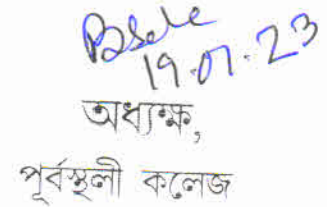 19.01.23
অধ্যক্ষ,
পূর্বস্থলী কলেজ